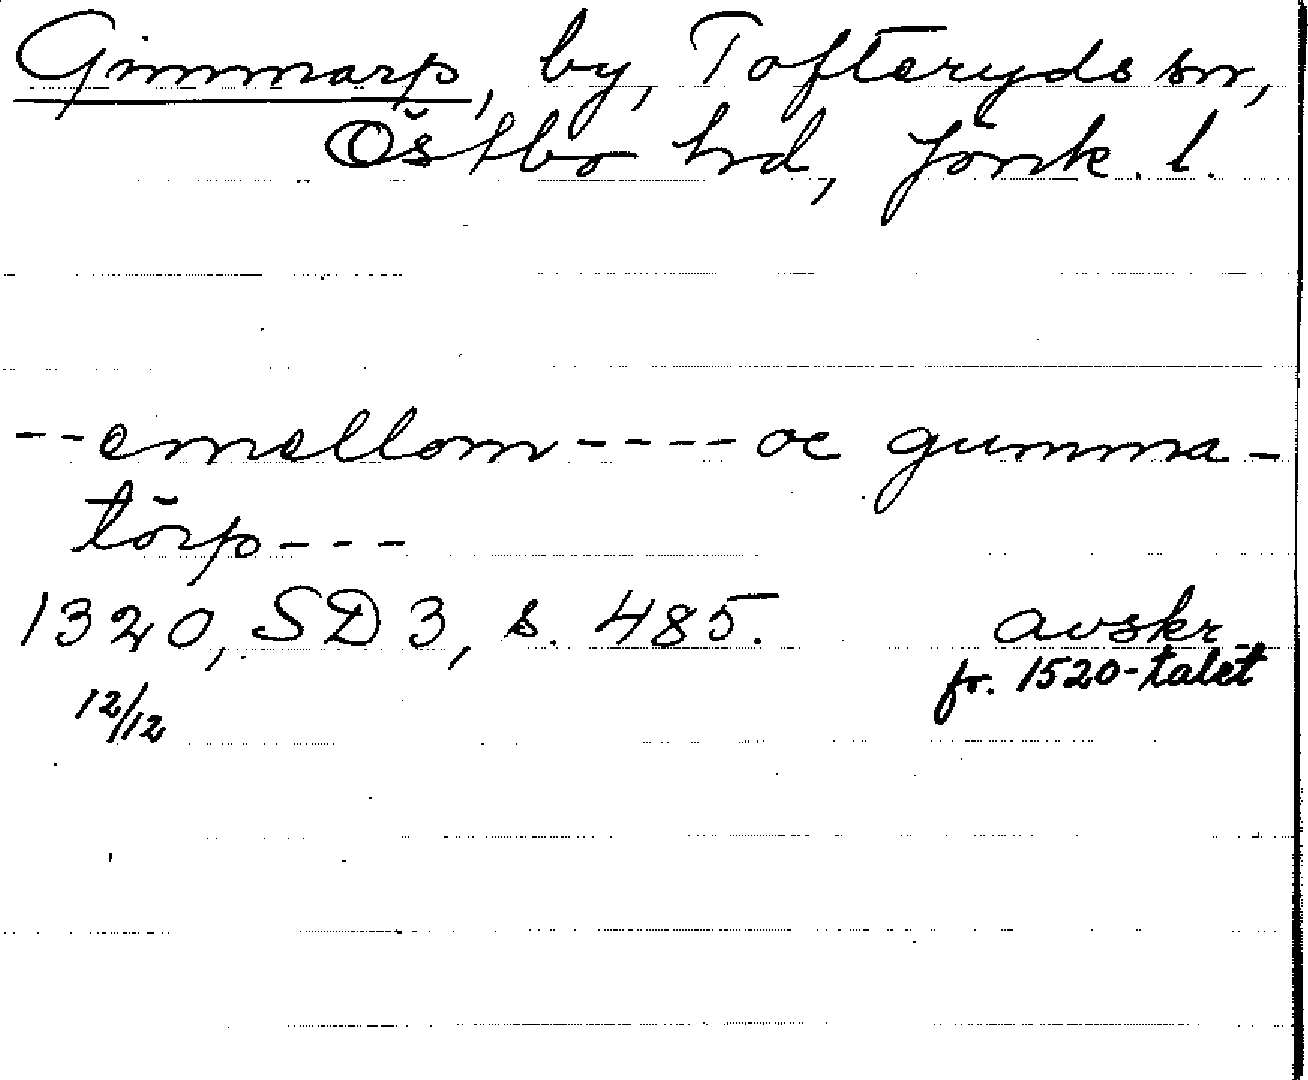 Gimmarp, by, Tofteryds sn,
Östbo hd, Jönk. l.
--emellom---- oc gumma-
törp---
1320, SD 3, s. 485. avskr
fr. 1520-talet
12/12